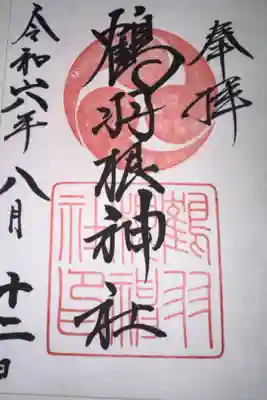 奉拝
鶴羽根神社
令和六年八月十二日
鶴羽根神社印